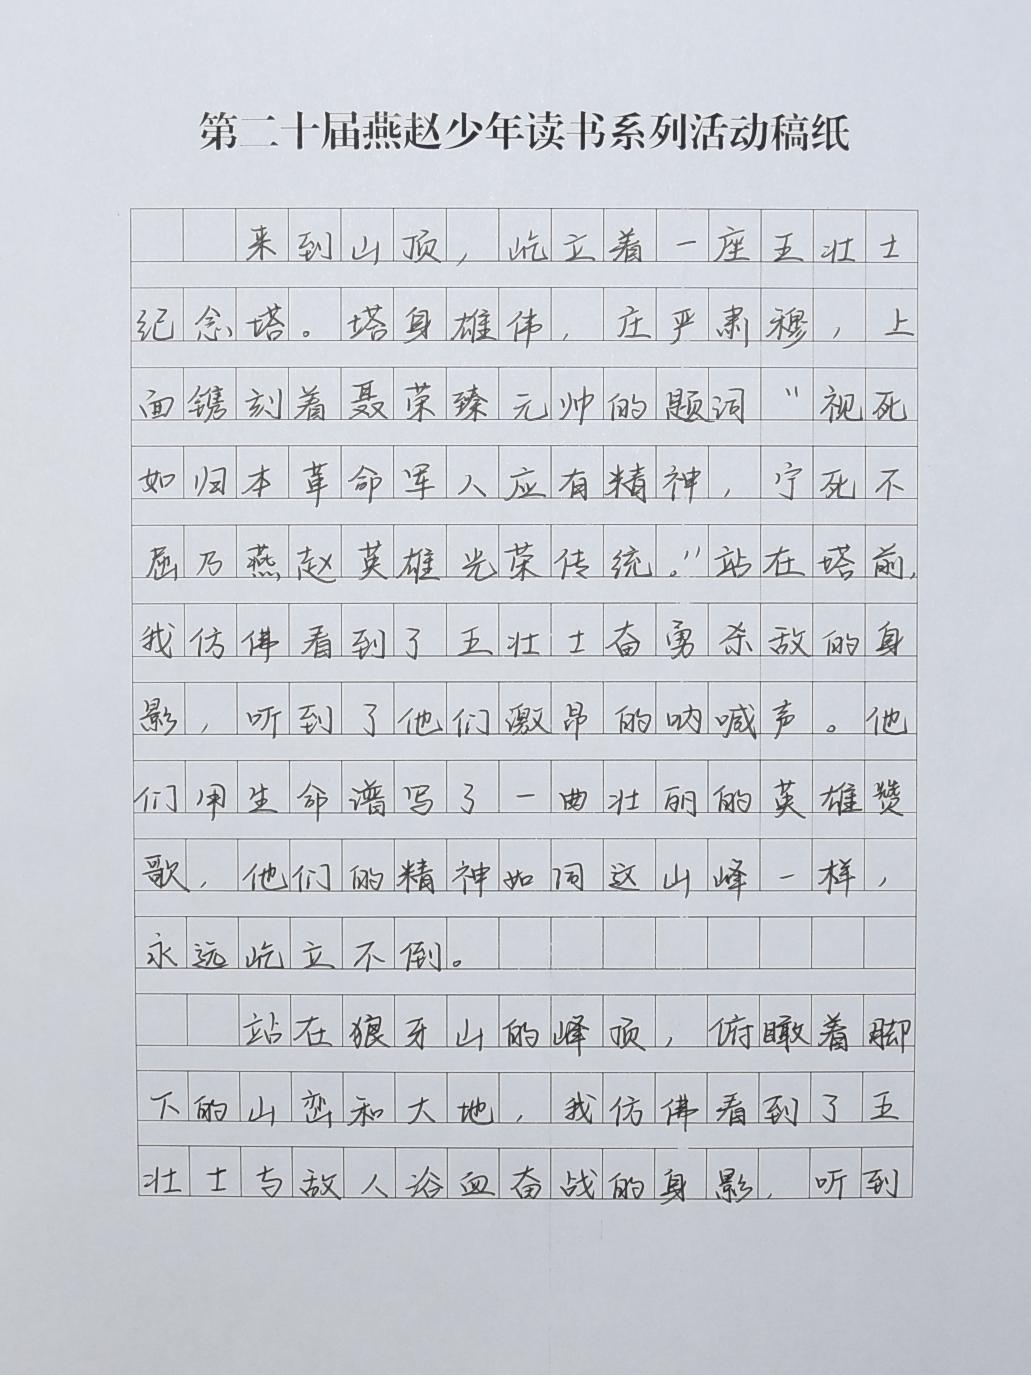 第二十届燕赵少年读书系列活动稿纸
来到山顶，屹立着一座五壮士
纪念塔。塔身雄伟，庄严肃穆，上
面镌刻着聂荣臻元帅的题词“视死
如归本革命军人应有精神，宁死不
屈乃燕赵英雄光荣传统。”站在塔前，
我仿佛看到了五壮士奋勇杀敌的身
影，听到了他们激昂的呐喊声。他
们用生命谱写了一曲壮丽的英雄赞
歌，他们的精神如同这山峰一样，
永远屹立不倒。
站在狼牙山的峰顶，俯瞰着脚
下的山峦和大地，我仿佛看到了五
壮士与敌人浴血奋战的身影，听到